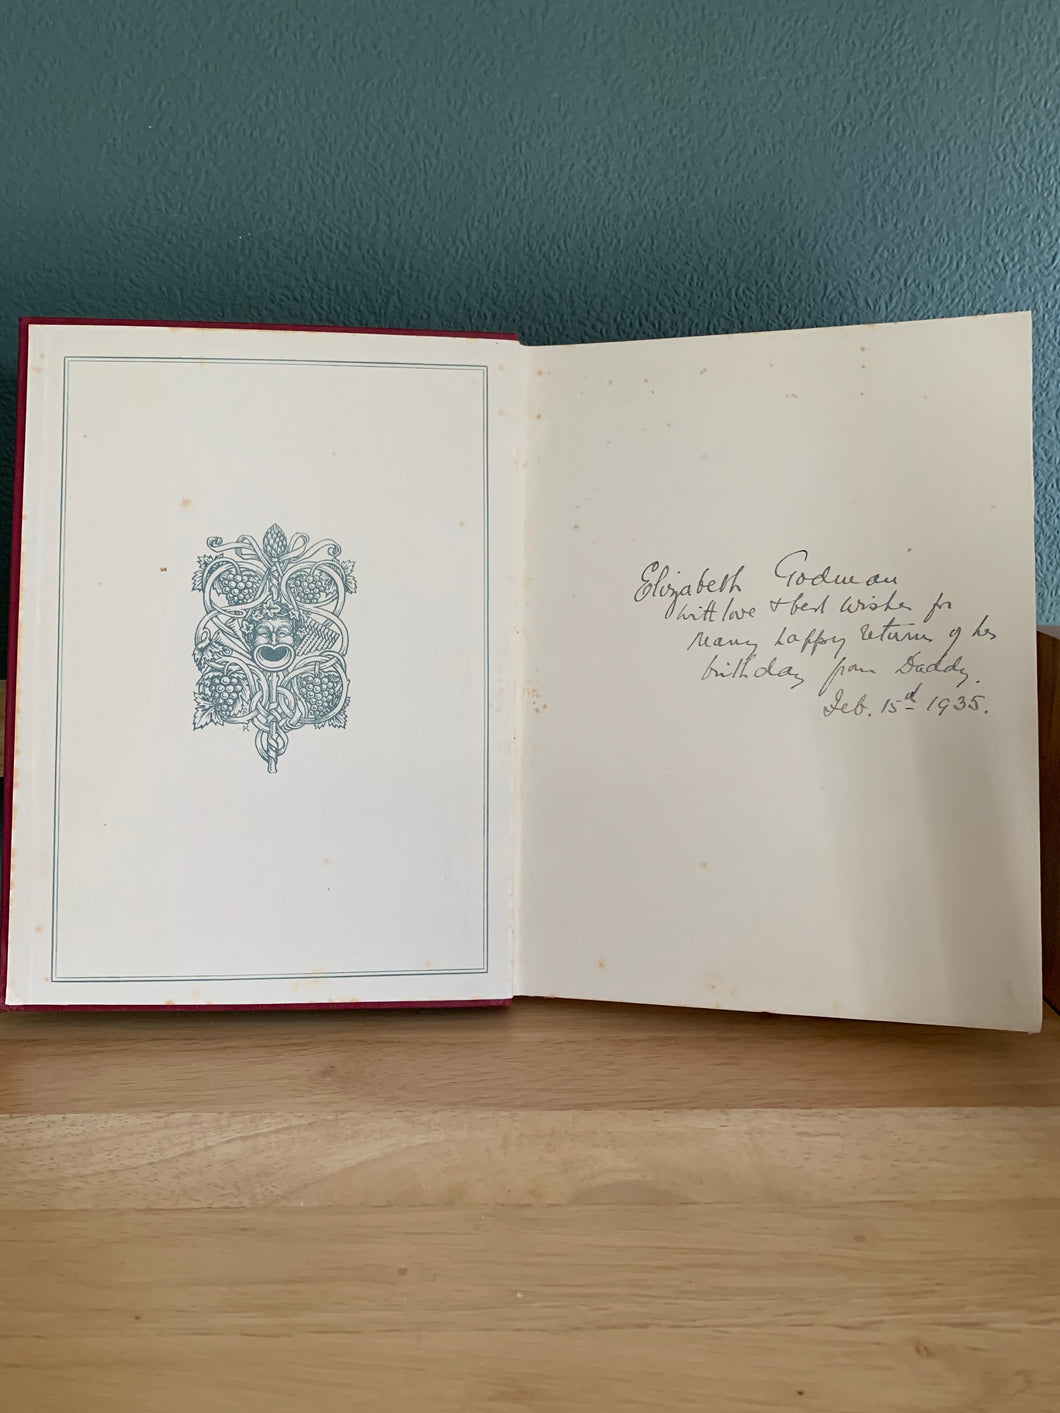 Elizabeth Godman
with love & best wishes for
many happy returns of her
birthday from Daddy.
Feb. 15d 1935.